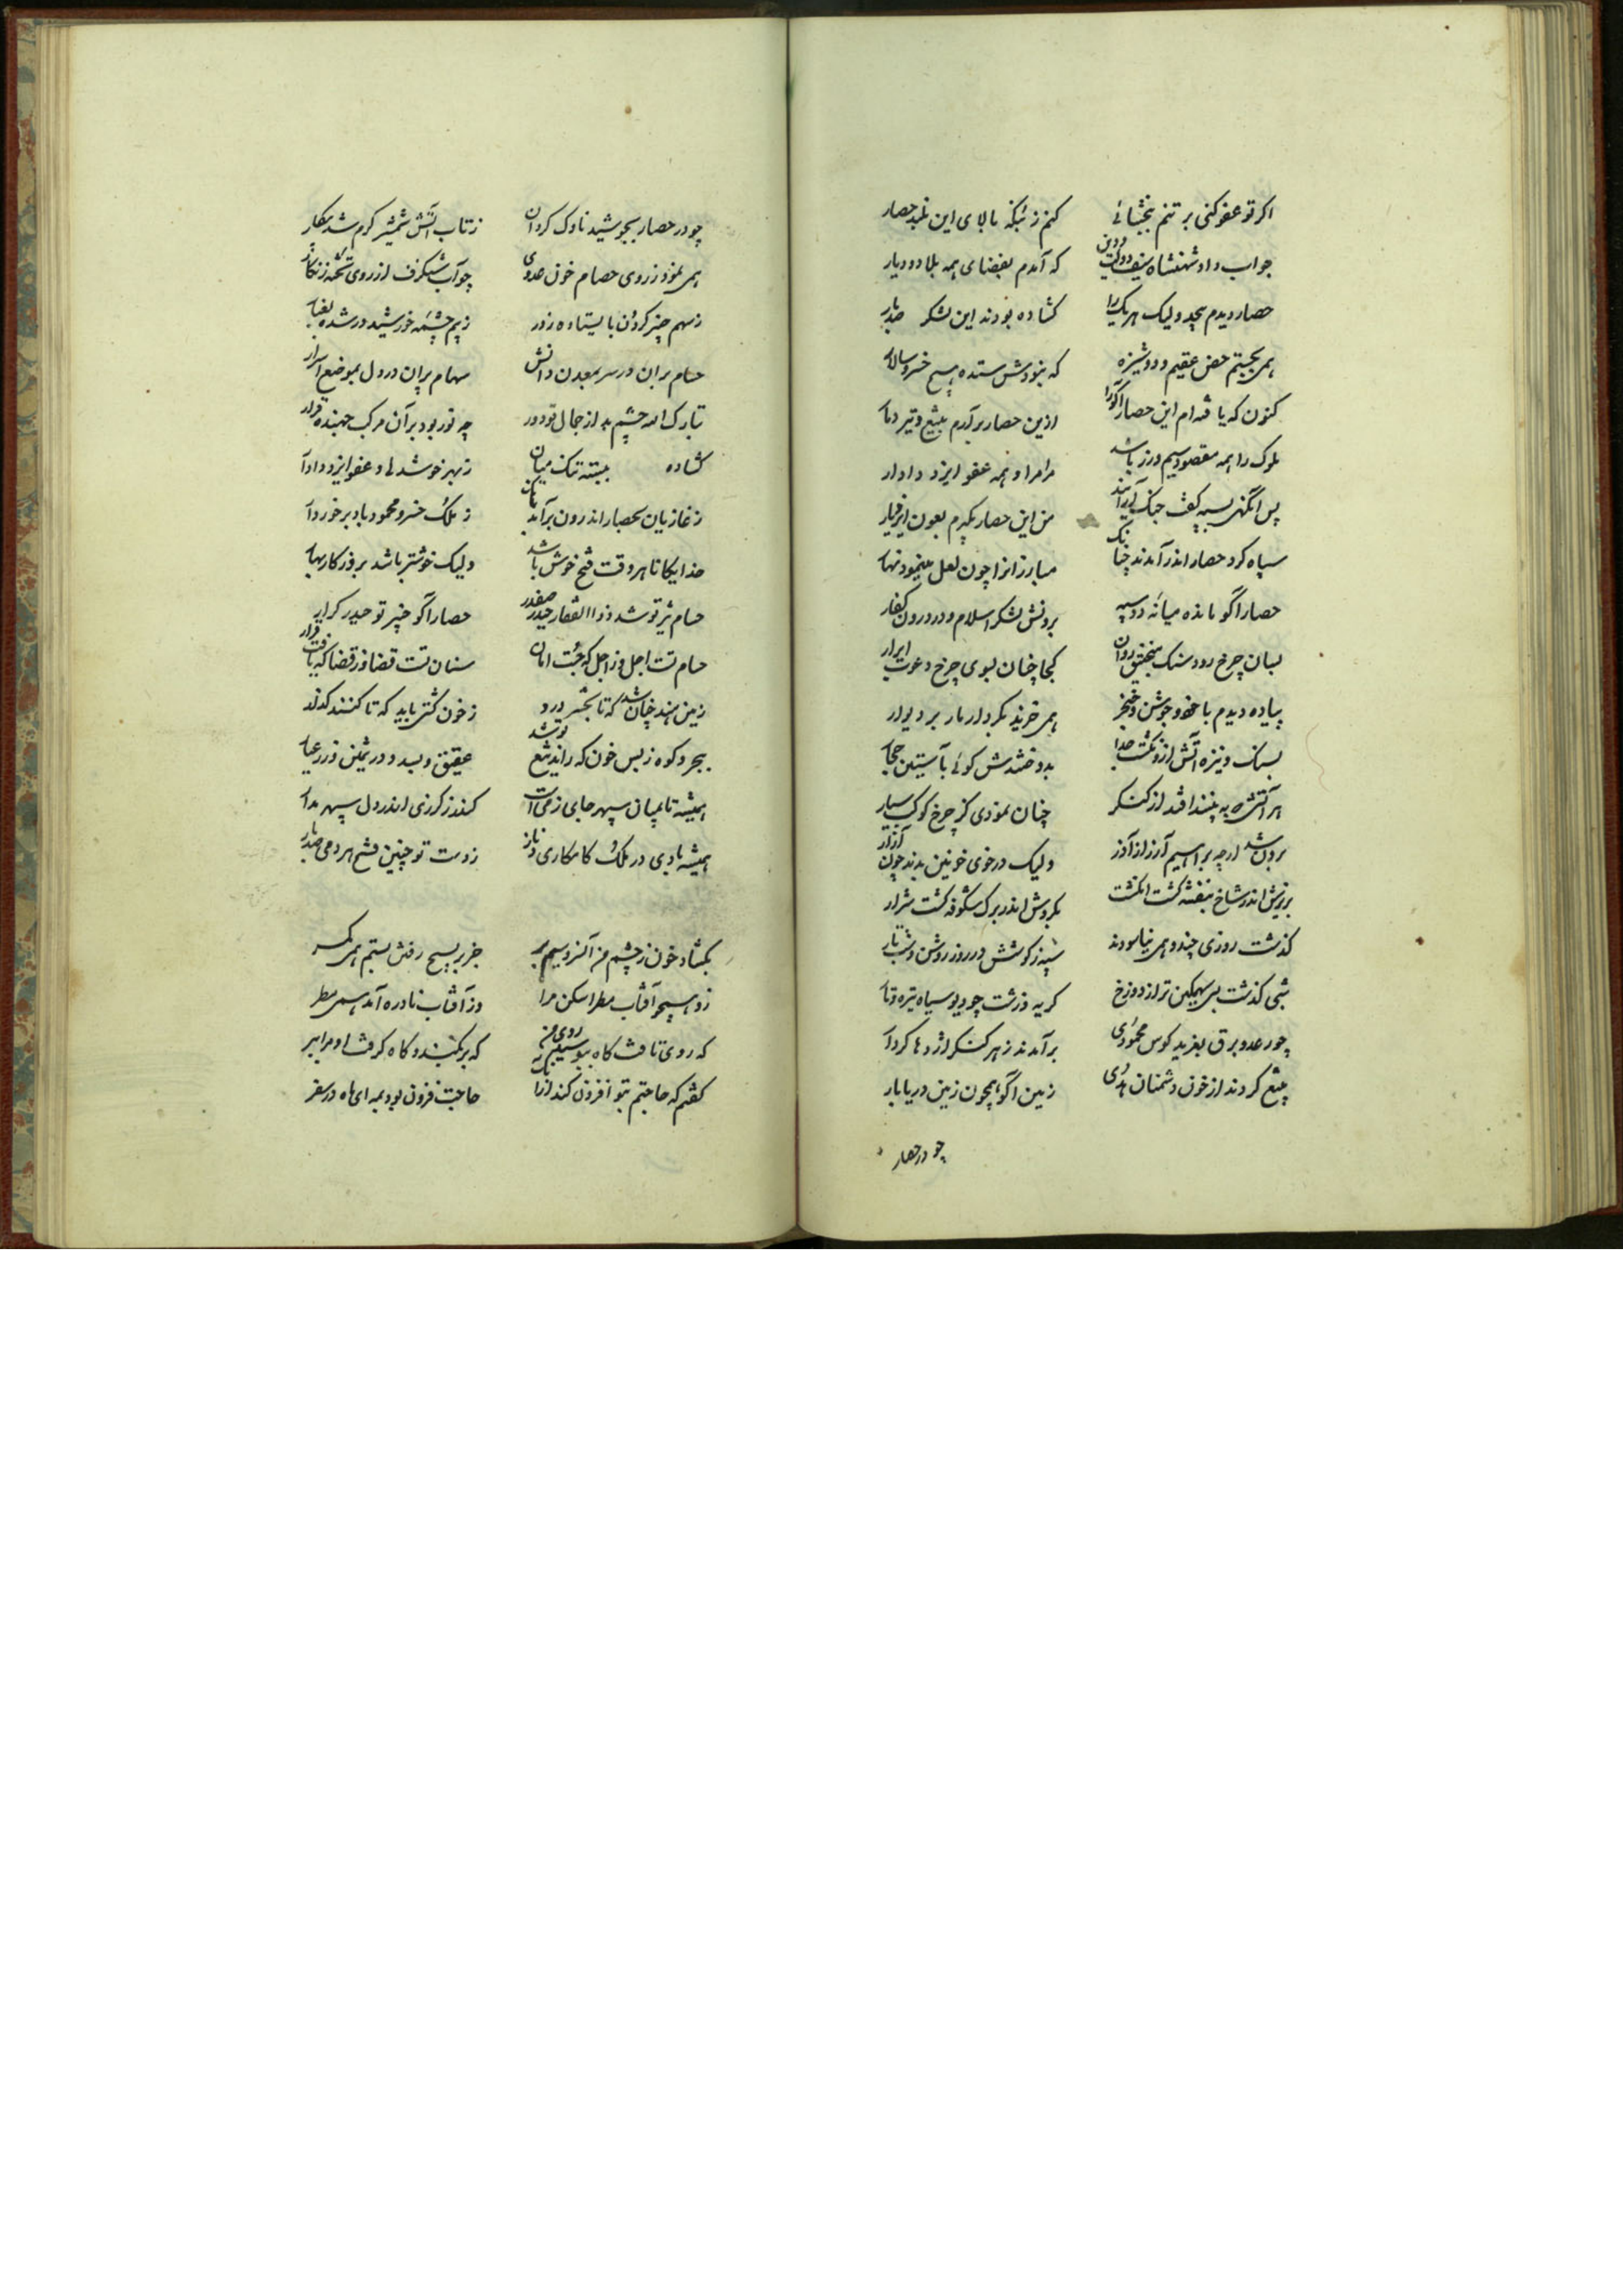 اکر تو عفو کنی بر تنم ببخشائی کنم ز بالای این بلند حصار
جواب داد شهنشاه سیف دولت و دین که آمدم بغضای همه بلاد و دیار
حصار دیدم بیحد ولیک هر یک را کشاده بودند این لشکر صدبار
همی بجستم حصن عقیم و دوشیزه که نبودش ستده هیچ خسرو سالار
کنون که یافته ام این حصار اکره را ازین حصار برآرم بتیغ و تیر دمار
ملوک را همه مقصود سیم و زر باشد مرا مراد همه عفو ایزد دادار
پس آنگهی بسپه کفت جنک پیش آرید من این حصار بکیرم بعون ایزد بار
سپاه کرد حصار اندر آمدند چنانک مبارزانرا چون لعل مینمود نهار
حصار اکره مانده میانه دو سپه برونش لشکر اسلام و در درون کفار
بسان چرخ رود سنک منجنیق روان کجا چنان بسوی چرخ دعوت ابرار
پیاده دیدم با خود و جوشن و خنجر همی خزید بکردار مار بر دیوار
بسنک و نیزه آتش ازو نکشت جدا بدوختندش کوئی بآستین
هر آتشی که بینداختند از کنکر چنان نمودی کز چرخ کوکب سیار
برون شد ارچه براهیم آزر از آذر ولیک در خوی خونین بدند چون آزار
بزیرش اندر شاخ بنفشه کشت انکشت بکردش اندر برک شکوفه کشت شرار
کذشت روزی چند و همی نیاسودند سپه ز کوشش در روز روشن و شب تار
شبی کذشت بس سهمکین تر از دوزخ کریه و زشت چو دیو سیاه تیره و تار
چو رعد و برق بغرید کوس محمودی برآمدند ز هر کنکر اژدها کردار
بتیغ کردند از خون دشمنان هدی زمین اکره همچون زمین دریا بار
چو در حصار
چو در حصار بجوشید ناوک کردان ز تاب آتش شمشیر کرم شد پیکار
همی نمود ز روی حسام خون عدوی چو آب شنکرف از روی تخته زنکار
ز سهم چنبر کردون بایستاده ز دور ز بیم چشمه خورشید در شده بغبار
حسام بران در سر بمعدن دانش سهام پران در دل بموضع اسرار
تبارک الله چشم بد از جمال تو دور چه نور بود بر آن مرکب جهنده قرار
کشاده ببسته تنک میان ز بهر خوشدلی و عفو ایزد دادار
ز غازیان بحصار اندرون برآمد بانک ز ملک خسرو محمود باد برخوردار
خدایکانا هر وقت فتح خوش باشد ولیک خوشتر باشد بروزکار بهار
حسام تیز تو شد ذوالفقار حیدر صفدر حصار اکره خیبر تو حیدر کرار
حسام تست اجل وز اجل که جست امان سنان تست قضا وز قضا که یافت فرار
زمین هند چنان شد که تا بحشر درو ز خون کشتی باید که تا کنند کذار
ببحر و کوه ز بس خون که راند تیغ تو شد عقیق و بسد و در ثمین و زر عیار
همیشه تا بمیان سپهر جای زمی است کند ز کردی اندر دل سپهر مدار
همیشه بادی در ملک کامکاری و ناز ز دست تو چنین فتح هر دمی صد بار
بکشاد خون ز چشم من آنسرو سیم بر چون بر بسیج رفتن بستم همی کمر
زد همچو آفتاب مطرا سکن مرا وز آفتاب نادره آمد همی مطر
که روی تافت کاه ببوسید روی من که برکشید و کاه کرفت او مرا ببر
کفتم که حاجتم بتو افزون کند از آنک حاجت فزون بود بمه ای ماه در سفر